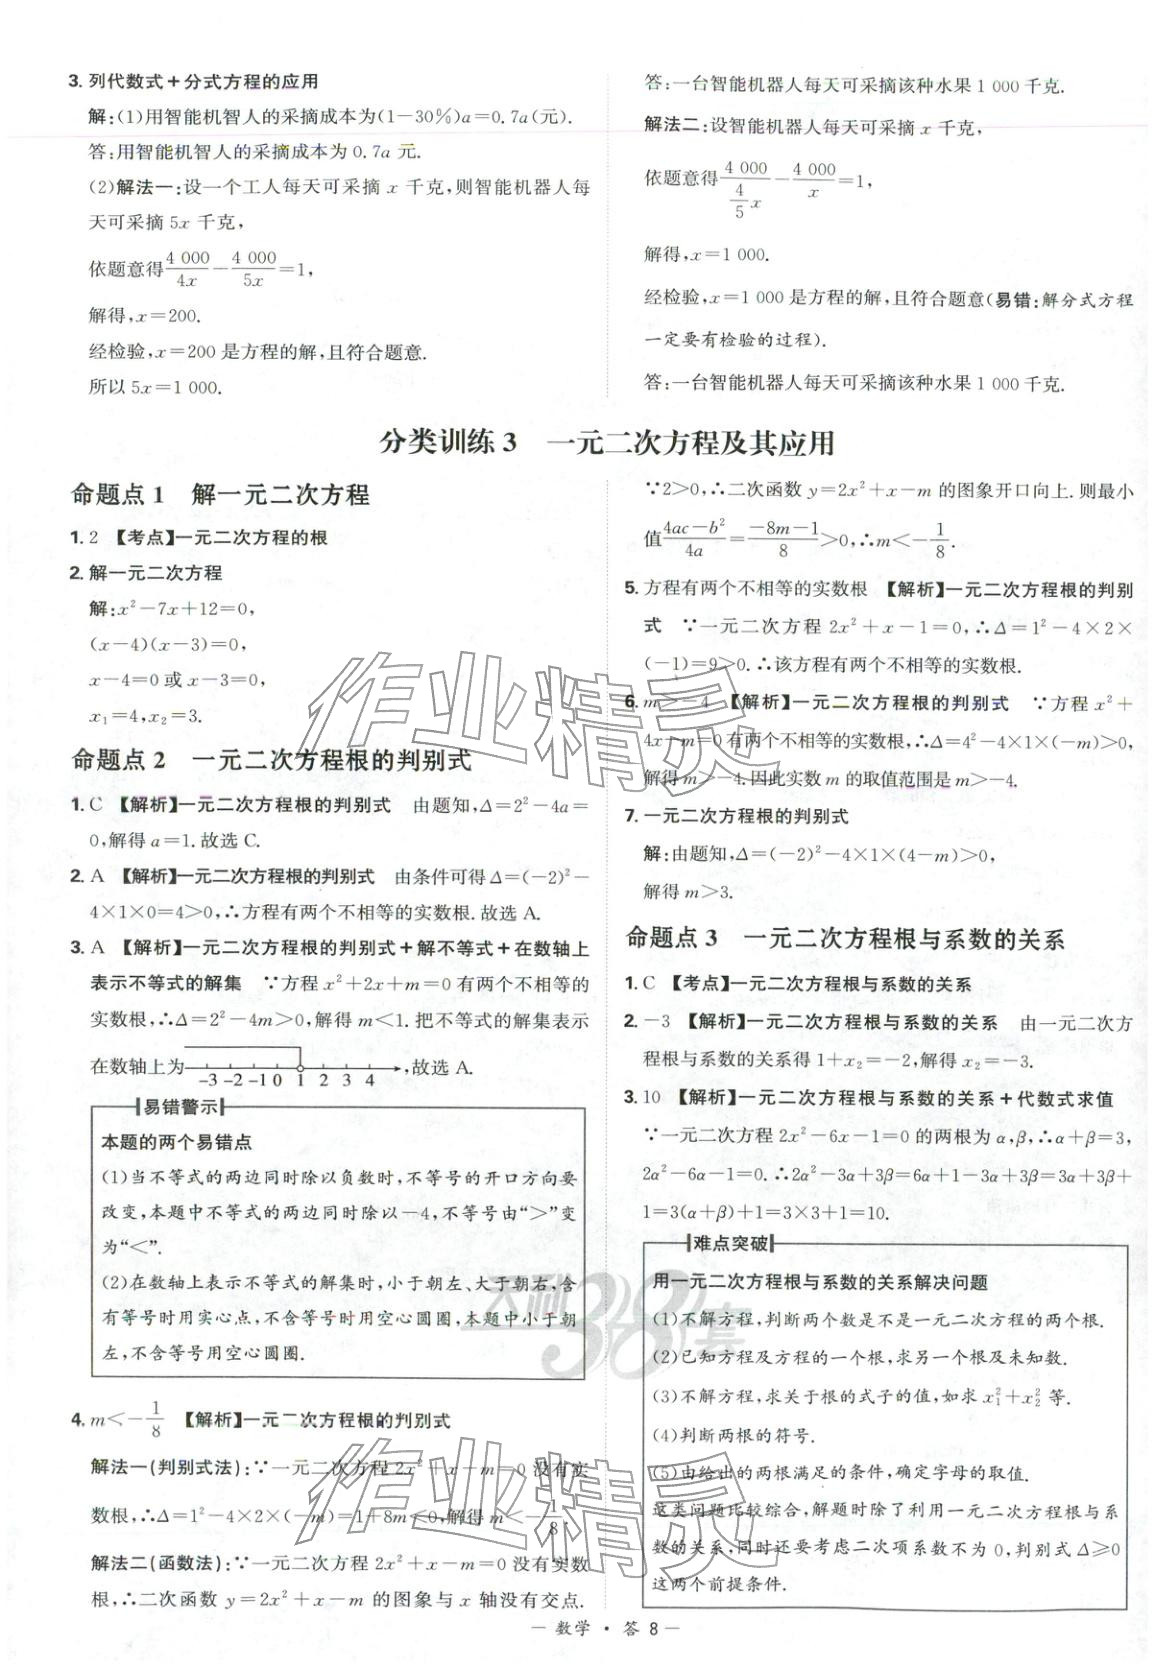 3. 列代数式+分式方程的应用
解:(1)用智能机智人的采摘成本为(1-30%)a=0.7a(元).
答:用智能机智人的采摘成本为0.7a元.
(2)解法一:设一个工人每天可采摘 x 千克,则智能机器人每
天可采摘 5x 千克,
依题意得 4 000/4x - 4 000/5x =1,
解得,x=200.
经检验,x=200 是方程的解,且符合题意.
所以 5x=1 000.
答:一台智能机器人每天可采摘该种水果 1 000 千克.
解法二:设智能机器人每天可采摘 x 千克,
依题意得 4 000/(4/5 x) - 4 000/x =1,
解得,x=1 000.
经检验,x=1 000 是方程的解,且符合题意(易错:解分式方程
一定要有检验的过程).
答:一台智能机器人每天可采摘该种水果 1 000 千克.
分类训练 3 一元二次方程及其应用
命题点 1 解一元二次方程
1. 2 【考点】一元二次方程的根
2. 解一元二次方程
解:x²-7x+12=0,
(x-4)(x-3)=0,
x-4=0 或 x-3=0,
x₁=4,x₂=3.
命题点 2 一元二次方程根的判别式
1. C 【解析】一元二次方程根的判别式 由题知,Δ=2²-4a=
0,解得 a=1.故选 C.
2. A 【解析】一元二次方程根的判别式 由条件可得 Δ=(-2)²-
4×1×0=4>0,∴方程有两个不相等的实数根.故选 A.
3. A 【解析】一元二次方程根的判别式+解不等式+在数轴上
表示不等式的解集 ∵方程 x²+2x+m=0 有两个不相等的
实数根,∴Δ=2²-4m>0,解得 m<1.把不等式的解集表示
在数轴上为 -3 -2 -1 0 1 2 3 4 ,故选 A.
易错警示
本题的两个易错点
(1)当不等式的两边同时除以负数时,不等号的开口方向要
改变,本题中不等式的两边同时除以-4,不等号由“>”变
为“<”.
(2)在数轴上表示不等式的解集时,小于朝左、大于朝右,含
有等号时用实心点,不含等号时用空心圆圈,本题中小于朝
左,不含等号用空心圆圈.
4. m<-1/8 【解析】一元二次方程根的判别式
解法一(判别式法):∵一元二次方程 2x²+x-m=0 没有实
数根,∴Δ=1²-4×2×(-m)=1+8m<0,解得 m<-1/8.
解法二(函数法):∵一元二次方程 2x²+x-m=0 没有实数
根,∴二次函数 y=2x²+x-m 的图象与 x 轴没有交点.
∵2>0,∴二次函数 y=2x²+x-m 的图象开口向上.则最小
值 (4ac-b²)/4a = (-8m-1)/8 >0,∴m<-1/8.
5. 方程有两个不相等的实数根 【解析】一元二次方程根的判别
式 ∵一元二次方程 2x²+x-1=0,∴Δ=1²-4×2×
(-1)=9>0.∴该方程有两个不相等的实数根.
6. m>-4 【解析】一元二次方程根的判别式 ∵方程 x²+
4x-m=0 有两个不相等的实数根,∴Δ=4²-4×1×(-m)>0,
解得 m>-4.因此实数 m 的取值范围是 m>-4.
7. 一元二次方程根的判别式
解:由题知,Δ=(-2)²-4×1×(4-m)>0,
解得 m>3.
命题点 3 一元二次方程根与系数的关系
1. C 【考点】一元二次方程根与系数的关系
2. -3 【解析】一元二次方程根与系数的关系 由一元二次方
程根与系数的关系得 1+x₂=-2,解得 x₂=-3.
3. 10 【解析】一元二次方程根与系数的关系+代数式求值
∵一元二次方程 2x²-6x-1=0 的两根为 α,β,∴α+β=3,
2α²-6α-1=0.∴2α²-3α+3β=6α+1-3α+3β=3α+3β+
1=3(α+β)+1=3×3+1=10.
难点突破
用一元二次方程根与系数的关系解决问题
(1)不解方程,判断两个数是不是一元二次方程的两个根.
(2)已知方程及方程的一个根,求另一个根及未知数.
(3)不解方程,求关于根的式子的值,如求 x₁²+x₂² 等.
(4)判断两根的符号.
(5)由给出的两根满足的条件,确定字母的取值.
这类问题比较综合,解题时除了利用一元二次方程根与系
数的关系,同时还要考虑二次项系数不为 0,判别式 Δ≥0
这两个前提条件.
作业精灵
天利38套
作业精灵
— 数学 · 答 8 —